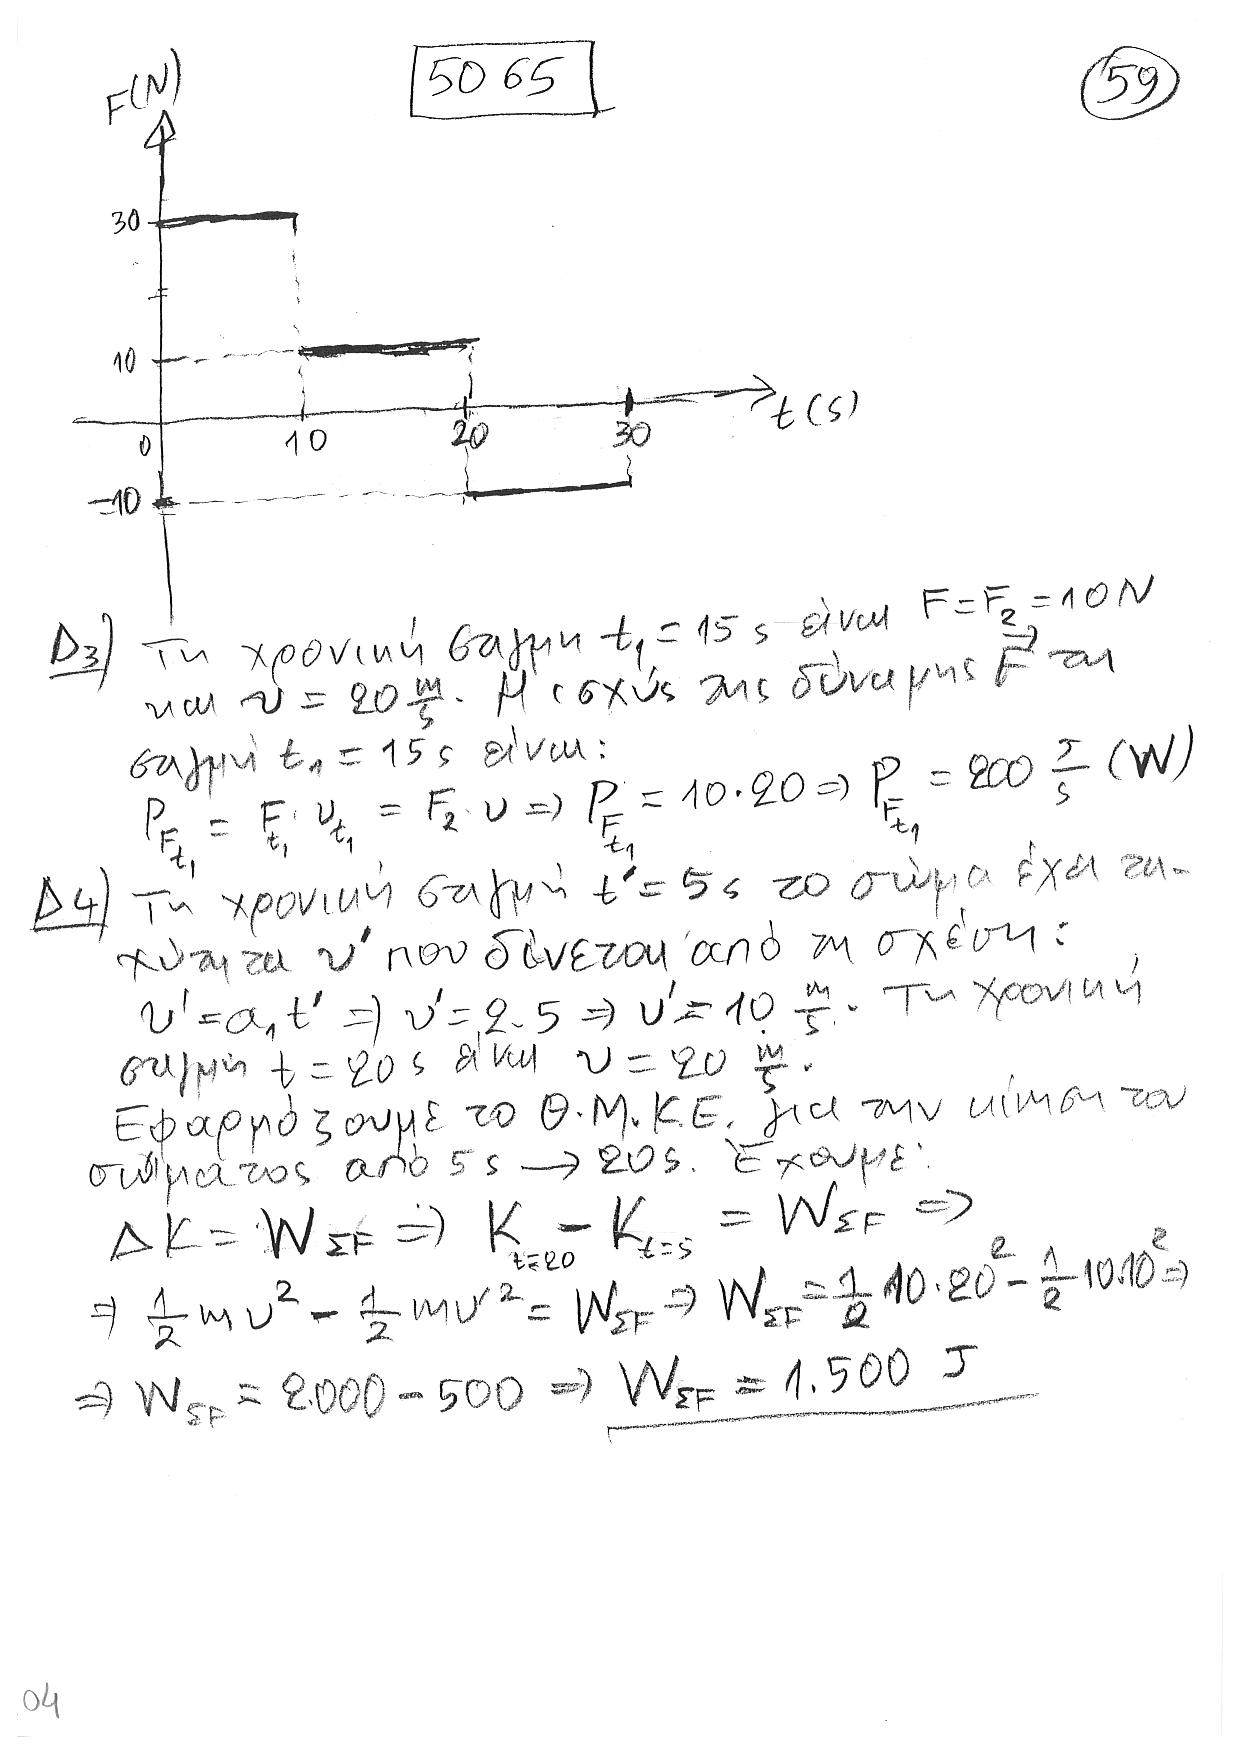 5065
59
F(N)
30
10
0
10
20
30
t(s)
-10
Δ3) Τη χρονική στιγμή t₁ = 15 s είναι F = F₂ = 10 N
και υ = 20 m/s. Η ισχύς της δύναμης F⃗ τη
στιγμή t₁ = 15 s είναι:
P_F_t₁ = F_t₁ · υ_t₁ = F₂ · υ ⇒ P_F_t₁ = 10·20 ⇒ P_F_t₁ = 200 J/s (W)
Δ4) Τη χρονική στιγμή t' = 5 s το σώμα έχει τα-
χύτητα υ' που δίνεται από τη σχέση:
υ' = α₁t' ⇒ υ' = 2·5 ⇒ υ' = 10 m/s. Τη χρονική
στιγμή t = 20 s είναι υ = 20 m/s.
Εφαρμόζουμε το Θ.Μ.Κ.Ε. για την κίνηση του
σώματος από 5 s → 20 s. Έχουμε:
ΔK = W_ΣF ⇒ K_t=20 - K_t=5 = W_ΣF ⇒
⇒ 1/2 mυ² - 1/2 mυ'² = W_ΣF ⇒ W_ΣF = 1/2 10·20² - 1/2 10·10² ⇒
⇒ W_ΣF = 2.000 - 500 ⇒ W_ΣF = 1.500 J
04